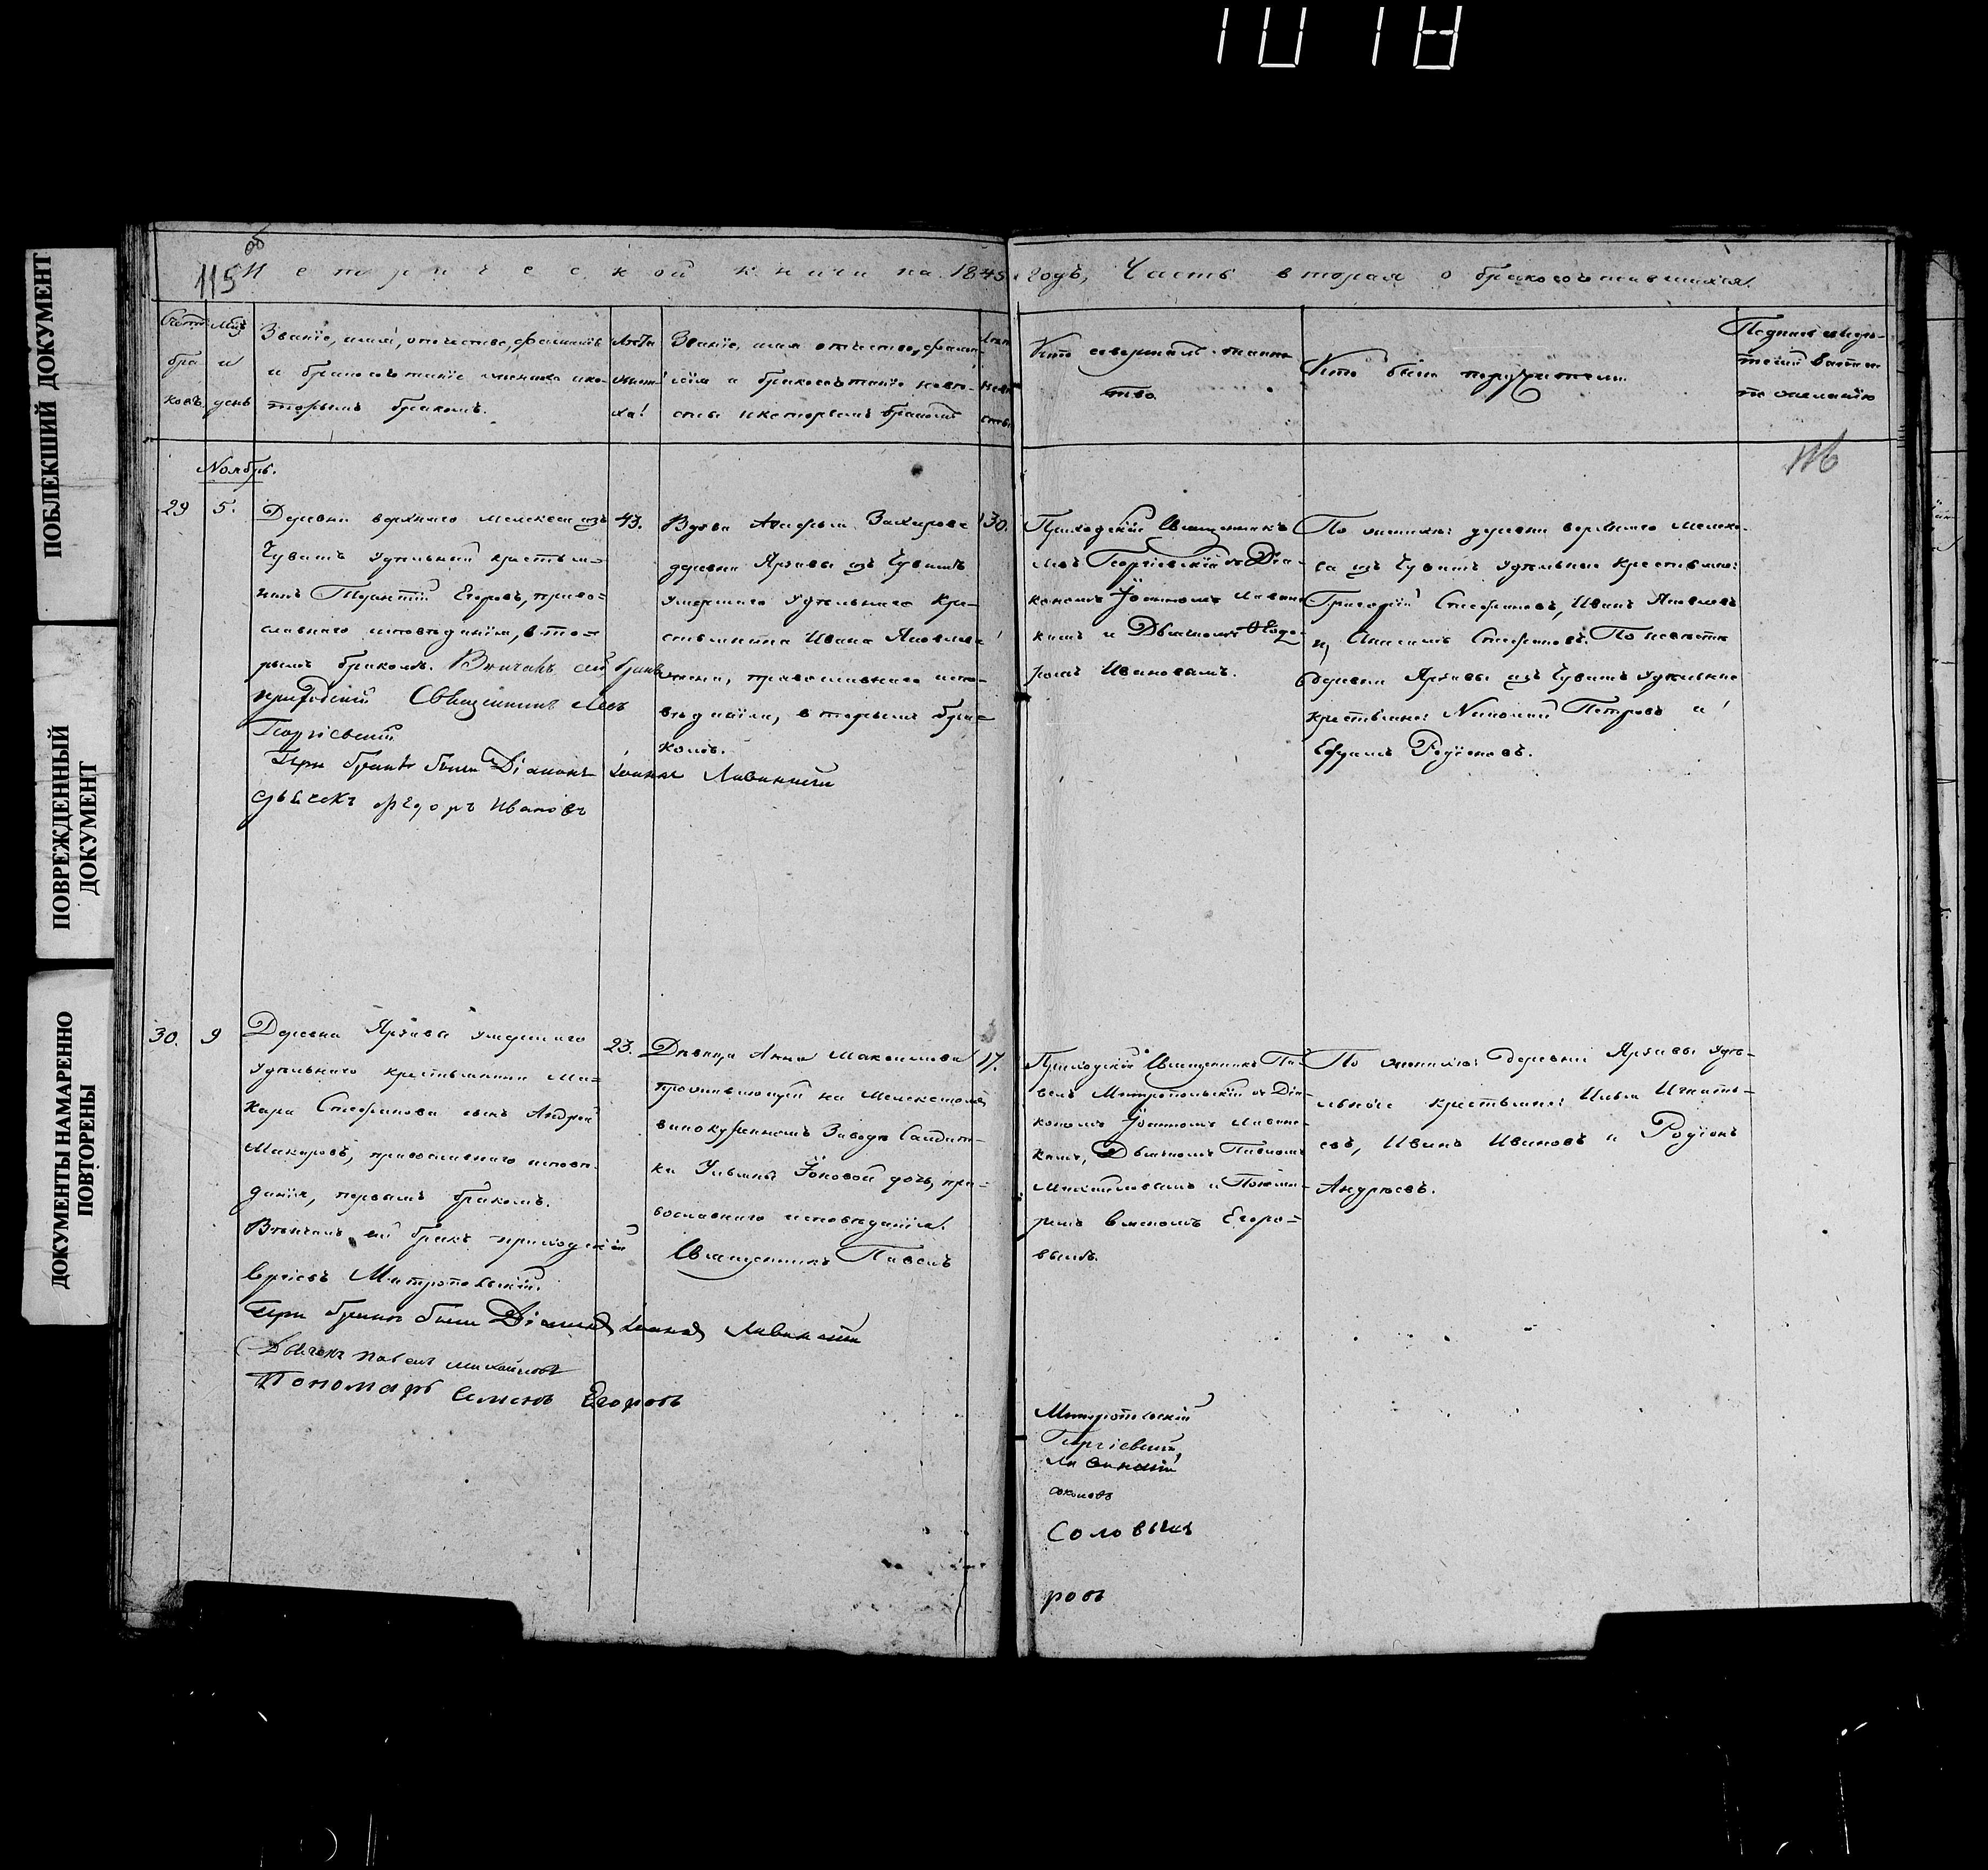 1018
ПОБЛЕКШИЙ ДОКУМЕНТ
ПОВРЕЖДЕННЫЙ
ДОКУМЕНТ
ДОКУМЕНТЫ НАМАРЕННО
ПОВТОРЕНЫ
об
115
Метрической книги на 1845 годъ, Часть вторая о бракосочетавшихся.
Счетъ
бра
ковъ.
Мцъ
и
день
Званіе, имя, отчество, фамилія
и вѣроисповѣданіе жениха и ко-
торымъ бракомъ.
Лѣта
жени
ха
Званіе, имя отчество, фами-
лія и невѣ-
сты и которымъ бракомъ
Кто совершалъ таинс
тво
Кто были поручители
Подпись свидѣ-
телей
по желанію
116
Ноябрь.
29
5.
Деревни верхняго Мелекеса изъ
Чувашъ Удѣльный крестья-
нинъ Терентій Егоровъ, право-
славнаго исповѣданія, вто-
рымъ бракомъ. Вѣнчалъ сей бракъ
приходскій Священникъ Левъ
Георгіевскій
При бракѣ были Діаконъ Іоаннъ Ливанскій
дьячекъ Федоръ Ивановъ
43.
Вдова Захарова
деревни Яркивы изъ Чувашъ
умершаго Удѣльнаго Кре-
стьянина Ивана Яковлева
жена, православнаго испо-
вѣданія, вторымъ бра-
комъ.
30.
Приходскій Священникъ
Левъ Георгіевскій съ Діа-
кономъ Іоанномъ Ливан
кимъ и Дьячкомъ Федо-
ромъ Ивановымъ.
По женихѣ: деревни верхняго Мелеке-
са изъ Чувашъ Удѣльные Крестьяне:
Григорій Стефановъ, Иванъ Яковлевъ
и, Стефановъ. По невѣстѣ
деревни Яркивы изъ Чувашъ Удѣльные
крестьяне: Николай Петровъ и
Ефремъ Родіоновъ.
30.
9
Деревни Яркивы умершаго
Удѣльнаго крестьянина Ма-
кара Стефанова сынъ Андрей
Макаровъ, православнаго исповѣ-
данія, первымъ бракомъ.
Вѣнчалъ сей бракъ приходскій
Іерей Митропольскій.
При бракѣ были Діаконъ Іоаннъ Ливанскій
Дьячекъ Павелъ Михайловъ
Пономарь Семенъ Егоровъ
23.
Дѣвица Анна Максимова
проживающей на Мелекескомъ
винокуренномъ Заводѣ Солдат-
ки Ульяны Іоновой дочь, пра-
вославнаго исповѣданія.
Священникъ Павелъ
17.
Приходскій Священникъ Па-
велъ Митропольскій съ Діа-
кономъ Іоанномъ Ливанс-
кимъ, Дьячкомъ Павломъ
Михайловымъ и Понома-
ремъ Егоро-
вымъ.
По женихѣ: деревни Яркивы Удѣ-
льные крестьяне: Илья Игнать-
евъ, Иванъ Ивановъ и Родіонъ
Андреевъ.
Митропольскій
Георгіевскій,
Ливанскій
Соловьевъ
ровъ